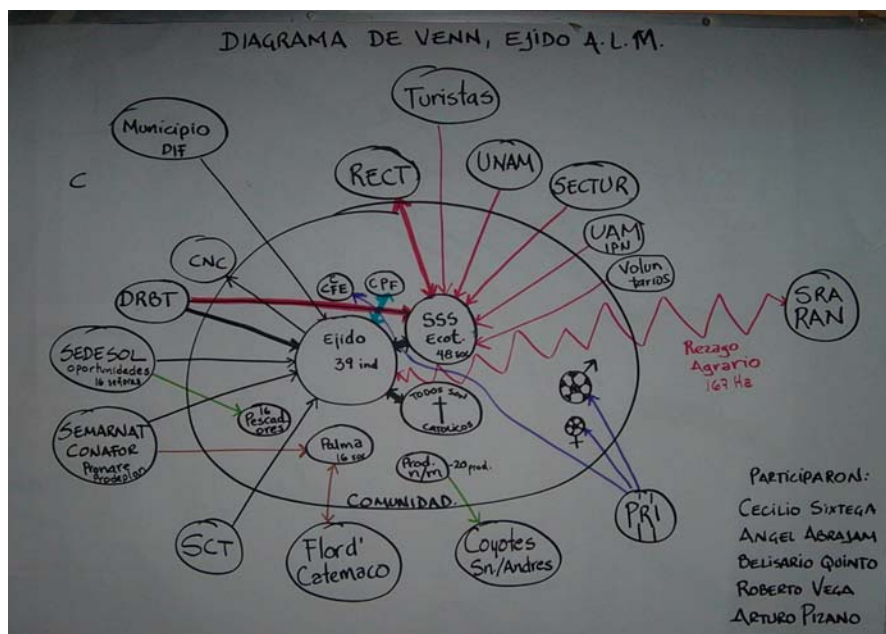 DIAGRAMA DE VENN, EJIDO A.L.M.
Turistas
Municipio
DIF
UNAM
RECT
SECTUR
C
UAM
IPN
Volun
tarios
CNC
C
CFE
CPF
DRBT
SRA
RAN
SSS
Ecot.
48 soc
Ejido
39 ind
Rezago
Agrario
167 Ha
SEDESOL
oportunidades
16 señoras
TODOS SON
CATOLICOS
16
Pescad
ores
SEMARNAT
CONAFOR
Pronare
Prodeplan
Palma
16 soc
Prod.
n/m
-20 prod.
COMUNIDAD.
PRI
SCT
Flord'
Catemaco
Coyotes
Sn/Andres
PARTICIPARON:
CECILIO SIXTEGA
ANGEL ABRAJAM
BELISARIO QUINTO
ROBERTO VEGA
ARTURO PIZANO